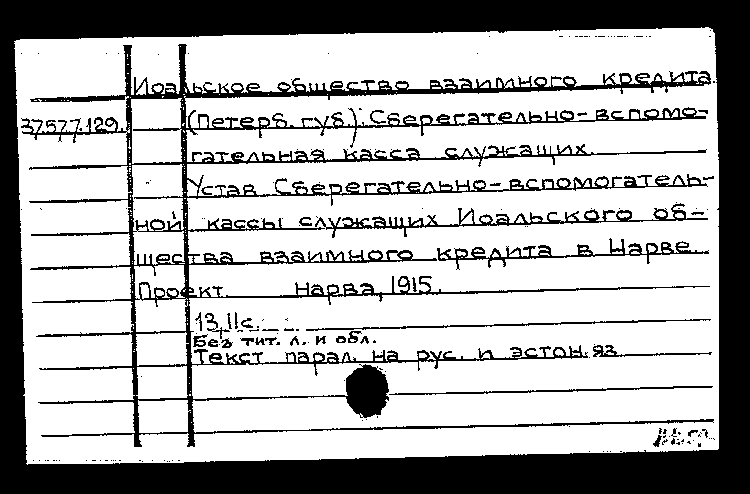 Иоальское общество взаимного кредита
37.57.7.129. (Петерб. губ.). Сберегательно-вспомо-
гательная касса служащих.
Устав Сберегательно-вспомогатель-
ной кассы служащих Иоальского об-
щества взаимного кредита в Нарве.
Проект. Нарва, 1915.
13, II с.
Без тит. л. и обл.
Текст парал. на рус. и эстон. яз.